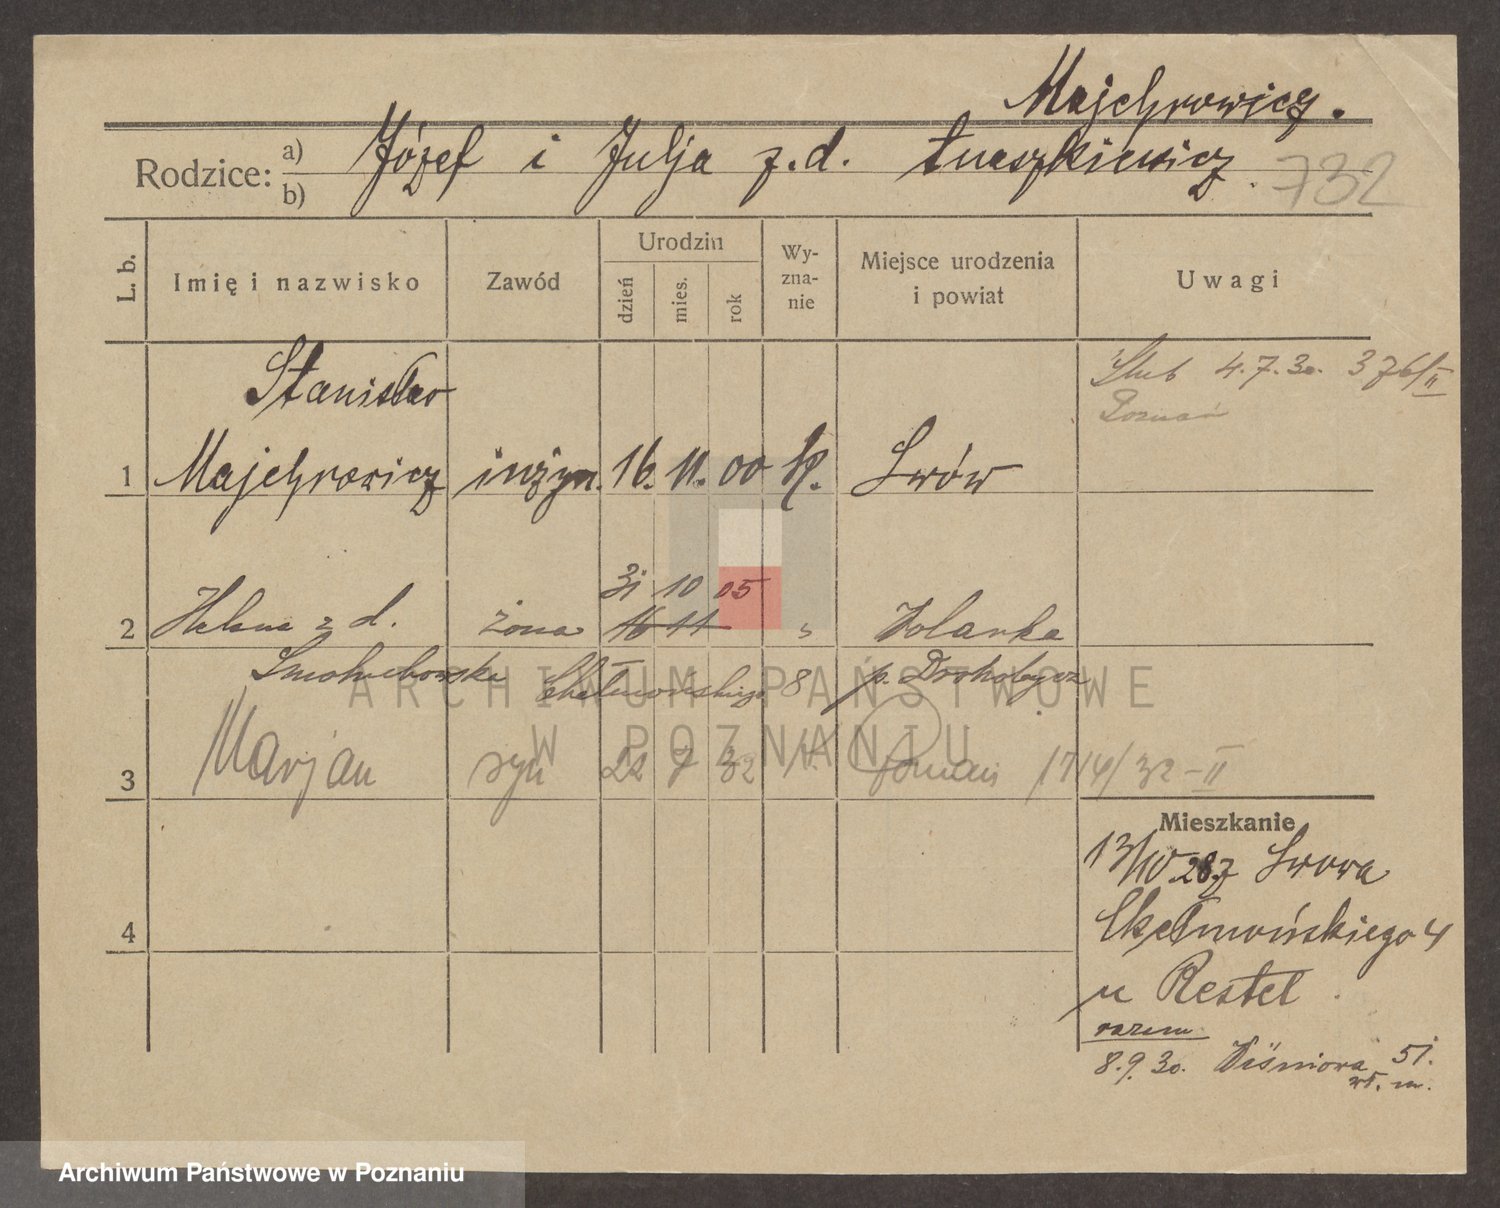 Majchrowicz.
Rodzice: a) b) Józef i Julja z.d. Łuaszkiewicz
732
L. b.
Imię i nazwisko
Zawód
Urodzin
dzień
mies.
rok
Wy-
zna-
nie
Miejsce urodzenia
i powiat
Uwagi
Ślub 4.7.30. 376/II
Poznań
Stanisław
1 Majchrowicz inżyn. 16. 11. 00 Lwów
31 10 05
2 Helena z d. żona 16 11 Wolanka
Smoluchowska Chełmońskiego 8 p. Drohobycz
3 Marjan syn 22 7 32 Poznań 1714/32-II
4
Mieszkanie
13/IV.28 z Lwowa
Chełmońskiego 4
u Restel
razem
8.9.30. Wiśniowa 51.
wł. m.
ARCHIWUM PAŃSTWOWE
W POZNANIU
Archiwum Państwowe w Poznaniu